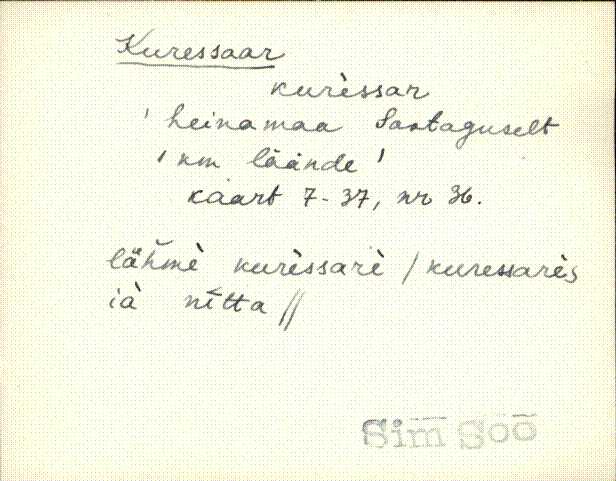 Kuressaar
kurèssar
' heinamaa Sootaguselt
1 km läände '
kaart 7-37, nr 36.
lähmè kurèssarè / kuressarès
ià nītta //
Sim Soo